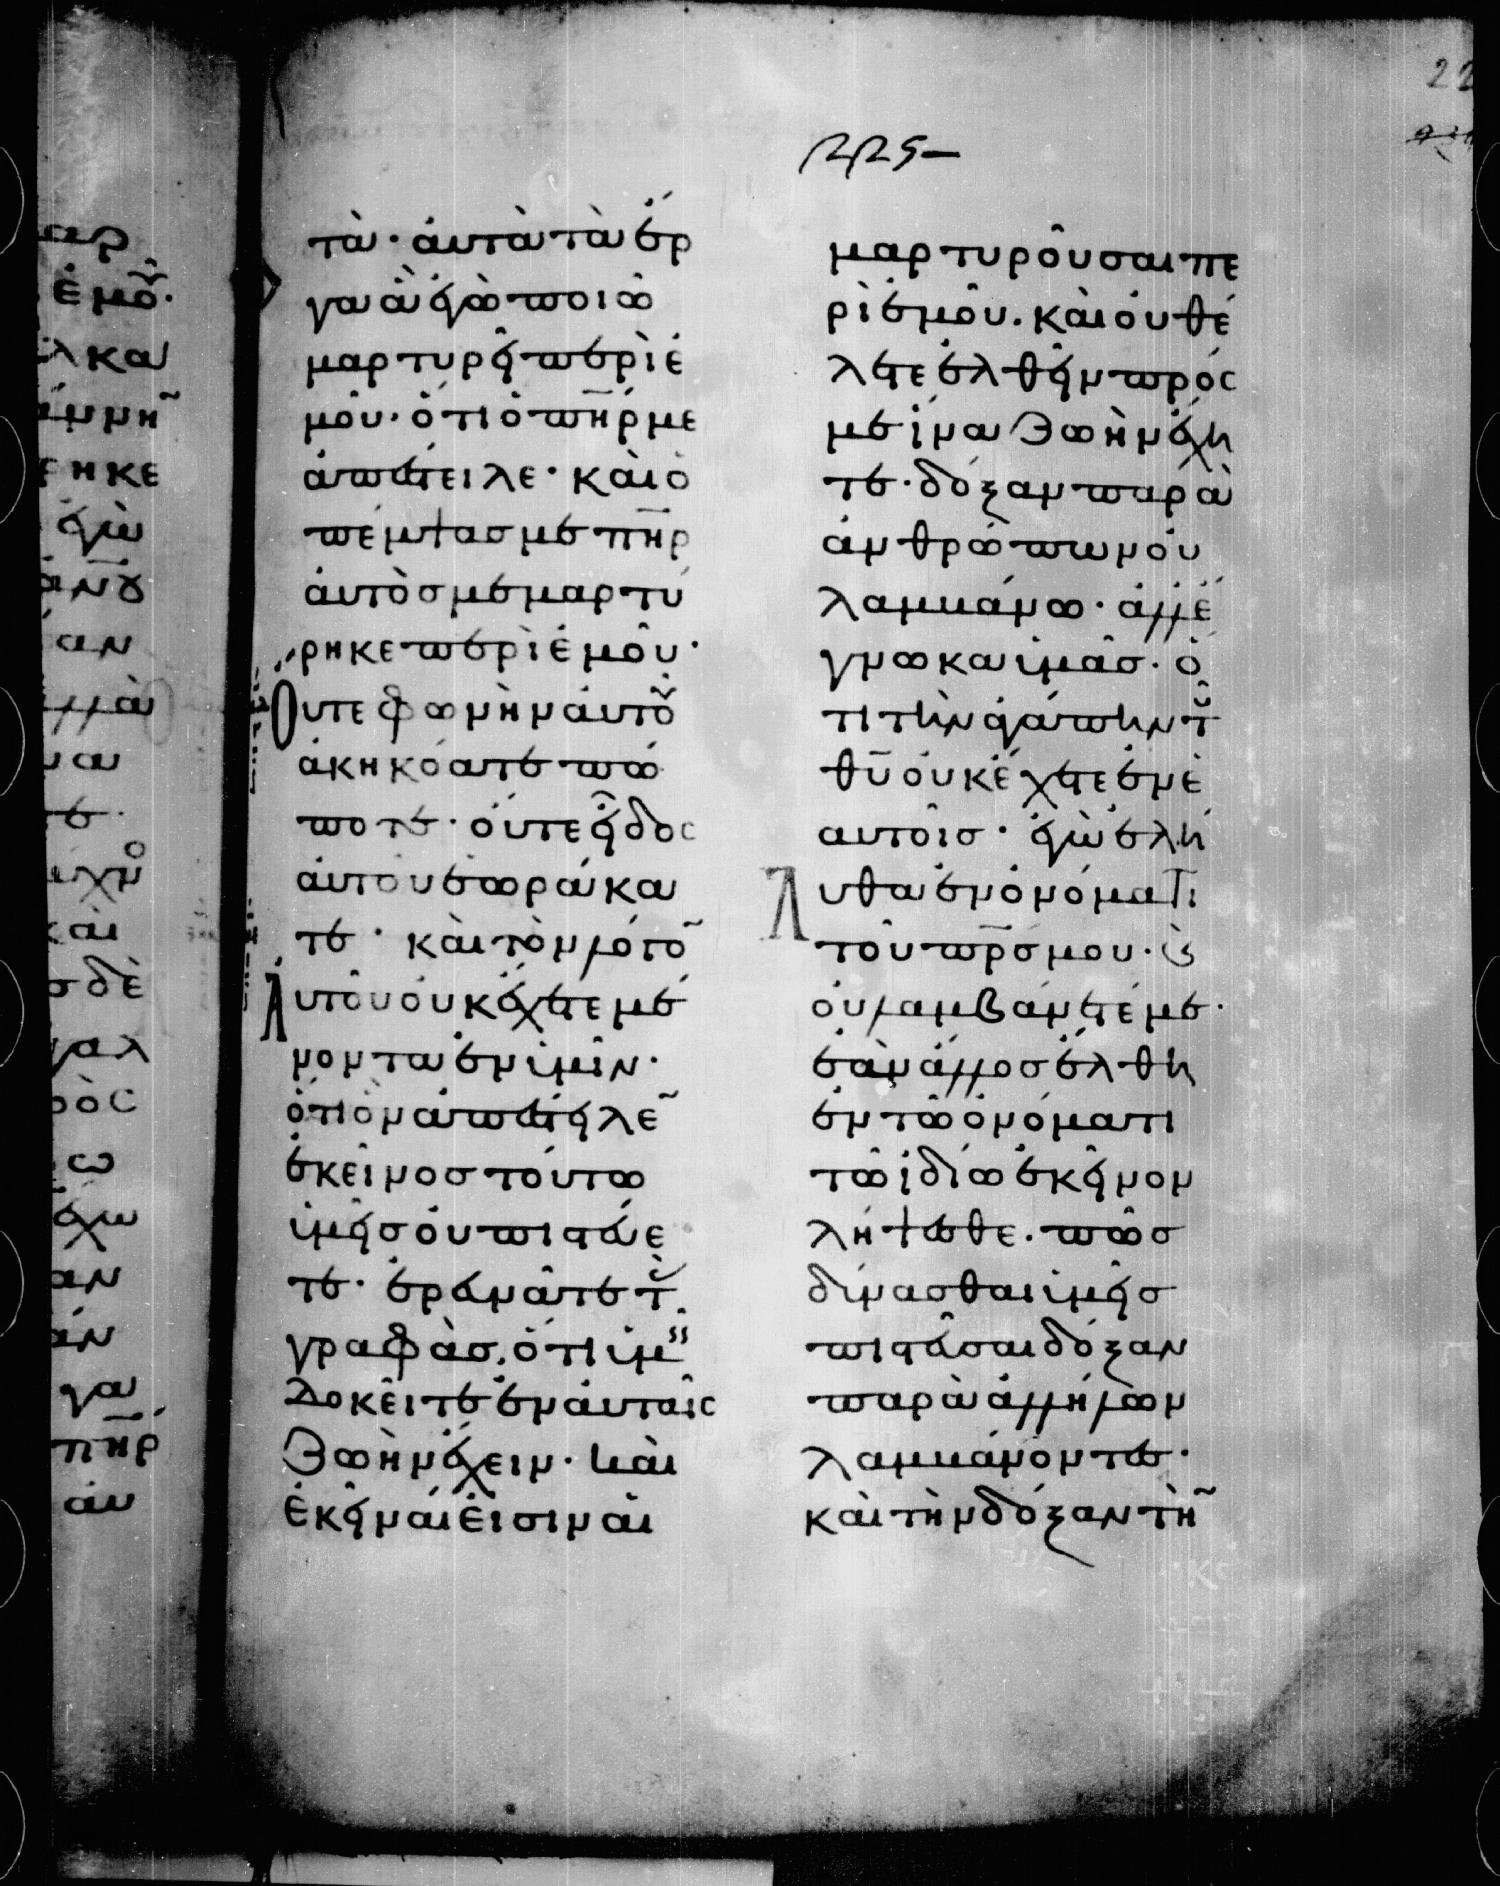 τὰ· ἀυτὰ τὰ ἔρ
γα ἃ ἐγὼ ποιῶ
μαρτυρεῖ περὶ ἐ
μοῦ· ὅτι ὁ πῆρ με
ἀπέστειλε· καὶ ὁ
πέμψασ με πῆρ
ἀυτὸσ μεμαρτύ
ρηκε περὶ ἐμοῦ·
Ουτε φωνὴν ἀυτοῦ
ἀκηκόατε πώ
ποτε· ὄυτε εἶδος
ἀυτου ἑωράκα
τε· καὶ τὸν λόγο̃
Αυτοῦ ὀυκ ἔχετε μέ
νοντα ἐν ὑμῖν·
ὅτι ὃν ἀπέστειλε̃
ἐκεῖνοσ τούτω
ὑμεῖσ ὀυ πιστεύε
τε· ἐρευνᾶτε τ̀
γραφὰσ, ὅτι ὑμ
δοκεῖτε ἐν ἀυταῖς
ζωὴν ἔχειν· καὶ
ἐκεῖναί ἐισιν αἱ
μαρτυροῦσαι πε
ρὶ ἐμοῦ. καὶ ὀυ θέ
λετε ἐλθεῖν πρός
με ἵνα ζωὴν ἔχη
τε· δόξαν παρὰ
ἀνθρώπων ὀυ
λαμβάνω· ἀλλ' ἔ
γνωκα ὑμᾶσ· ὅ
τι τὴν ἀγάπην τ̂
θῦ ὀυκ ἔχετε ἐν ἑ
αυτοῖσ· ἐγὼ ἐλή
Λυθα ἐν ὀνόματι
τοῦ πρ̅σ μου· ϗ
ὀυ λαμβάνετέ με·
ἐὰν ἄλλοσ ἔλθη
ἐν τῶ ὀνόματι
τῶ ἰδίω ἐκεῖνον
λήψεσθε. πῶσ
δύνασθαι ὑμεῖσ
πιστεῦσαι δόξαν
παρὰ ἀλλήλων
λαμβάνοντες·
καὶ τὴν δόξαν τὴ̃